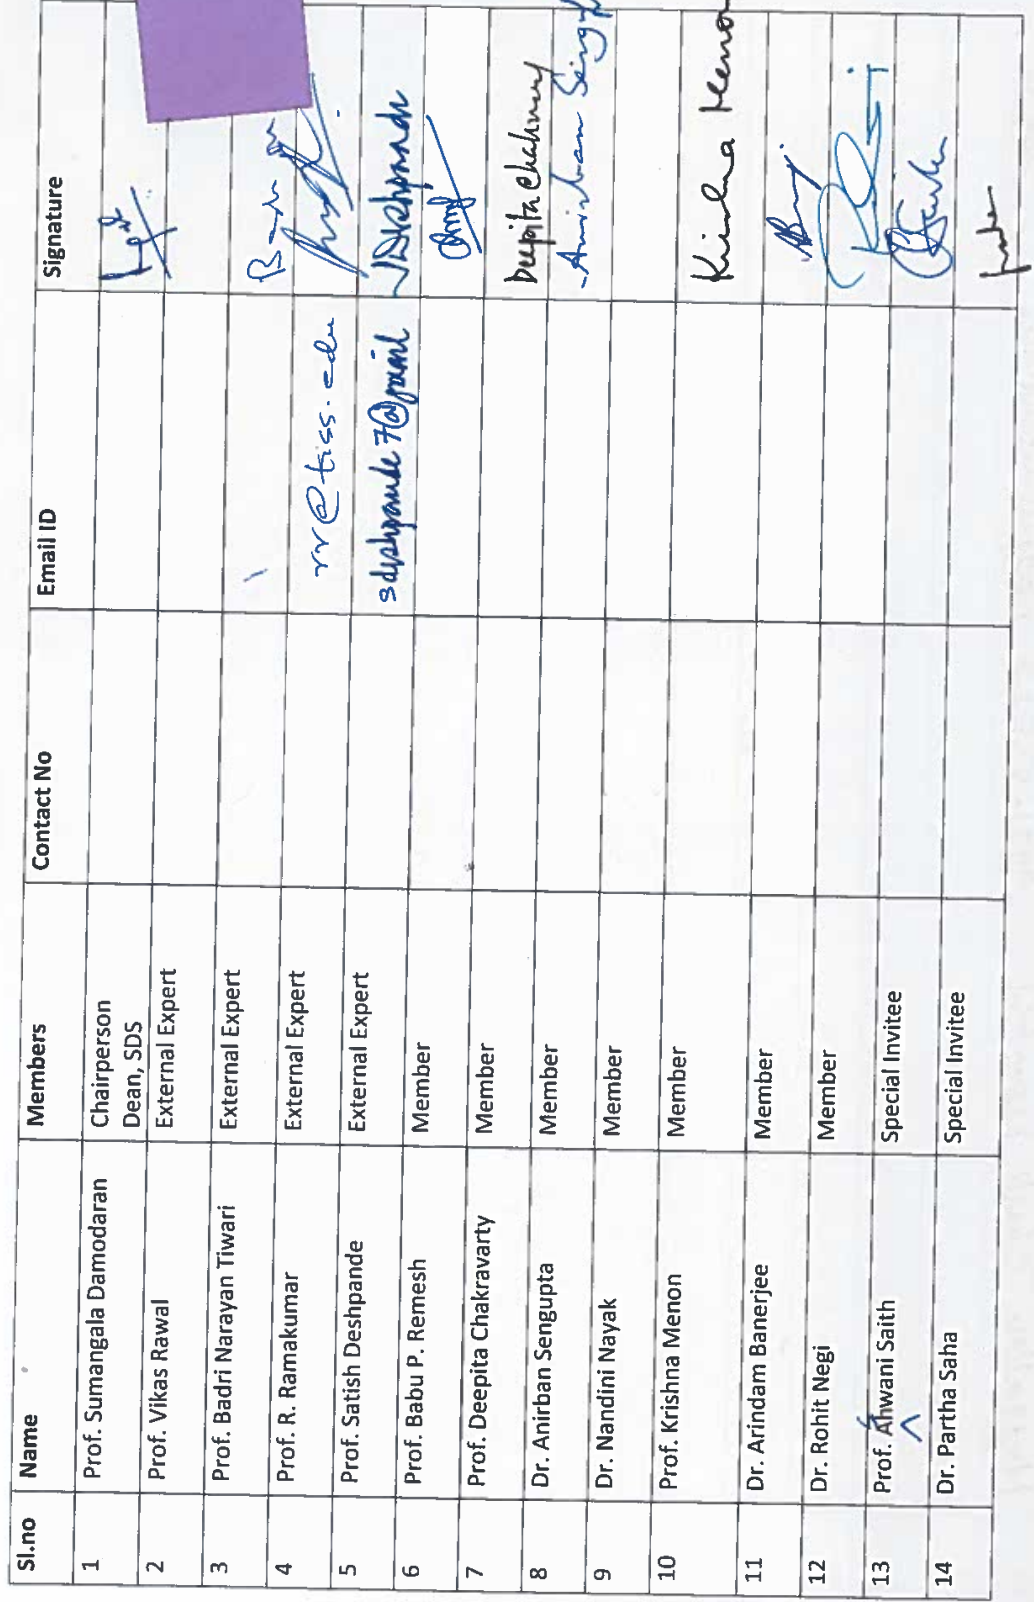 Sl.no Name Members Contact No Email ID Signature
1 Prof. Sumangala Damodaran Chairperson
Dean, SDS
2 Prof. Vikas Rawal External Expert
3 Prof. Badri Narayan Tiwari External Expert
4 Prof. R. Ramakumar External Expert rr@tiss.edu
5 Prof. Satish Deshpande External Expert sdeshpande7@gmail
6 Prof. Babu P. Remesh Member
7 Prof. Deepita Chakravarty Member Deepita Chakravarty
8 Dr. Anirban Sengupta Member Anirban Sengupta
9 Dr. Nandini Nayak Member
10 Prof. Krishna Menon Member Krishna Menon
11 Dr. Arindam Banerjee Member
12 Dr. Rohit Negi Member
13 Prof. Ahwani Saith Special Invitee
14 Dr. Partha Saha Special Invitee